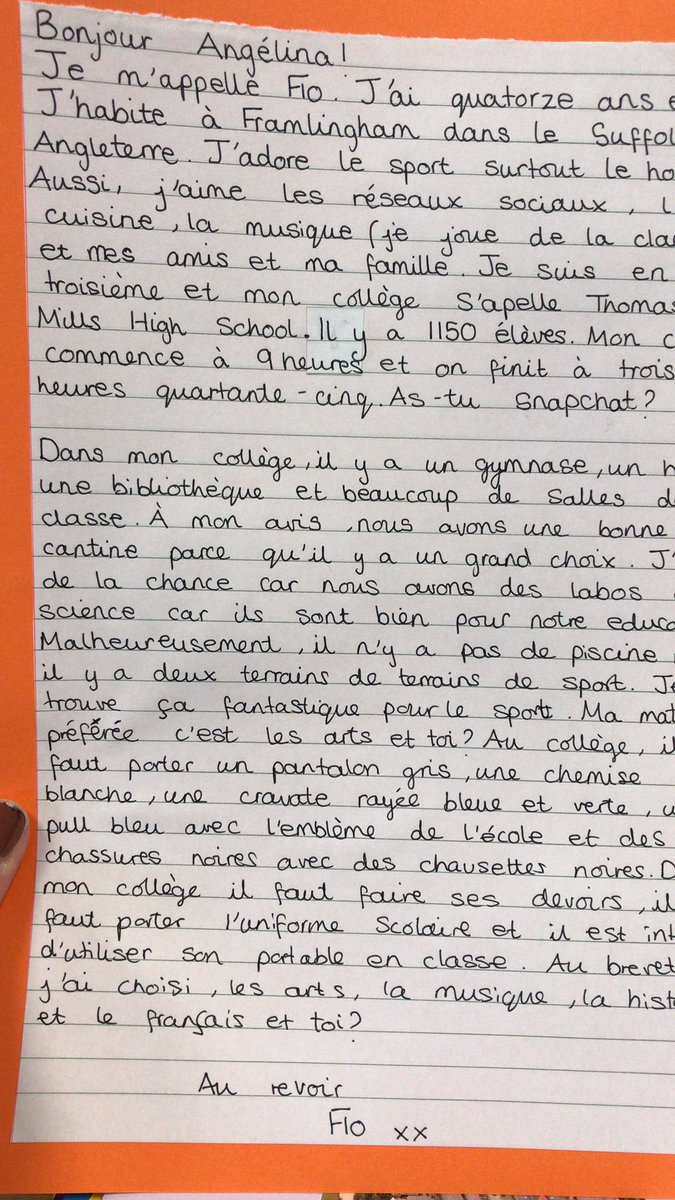 Bonjour Angélina!
Je m'appelle Flo. J'ai quatorze ans e
J'habite à Framlingham dans le Suffol
Angleterre. J'adore le sport surtout le ho
Aussi, j'aime les réseaux sociaux, l
cuisine, la musique (je joue de la cla
et mes amis et ma famille. Je suis en
troisième et mon collège s'apelle Thomas
Mills High School. Il y a 1150 élèves. Mon c
commence à 9 heures et on finit à trois
heures quartante-cinq. As-tu Snapchat?
Dans mon collège, il y a un gymnase, un h
une bibliothèque et beaucoup de salles d
classe. À mon avis, nous avons une bonne
cantine parce qu'il y a un grand choix. J'
de la chance car nous avons des labos
science car ils sont bien pour notre educa
Malheureusement, il n'y a pas de piscine
il y a deux terrains de terrains de sport. Je
trouve ça fantastique pour le sport. Ma mat
préférée c'est les arts et toi? Au collège, il
faut porter un pantalon gris, une chemise
blanche, une cravate rayée bleue et verte, u
pull bleu avec l'emblème de l'école et des
chassures noires avec des chausettes noires. D
mon collège il faut faire ses devoirs, il
faut porter l'uniforme scolaire et il est int
d'utiliser son portable en classe. Au brevet
j'ai choisi, les arts, la musique, la hist
et le français et toi?
Au revoir
Flo xx